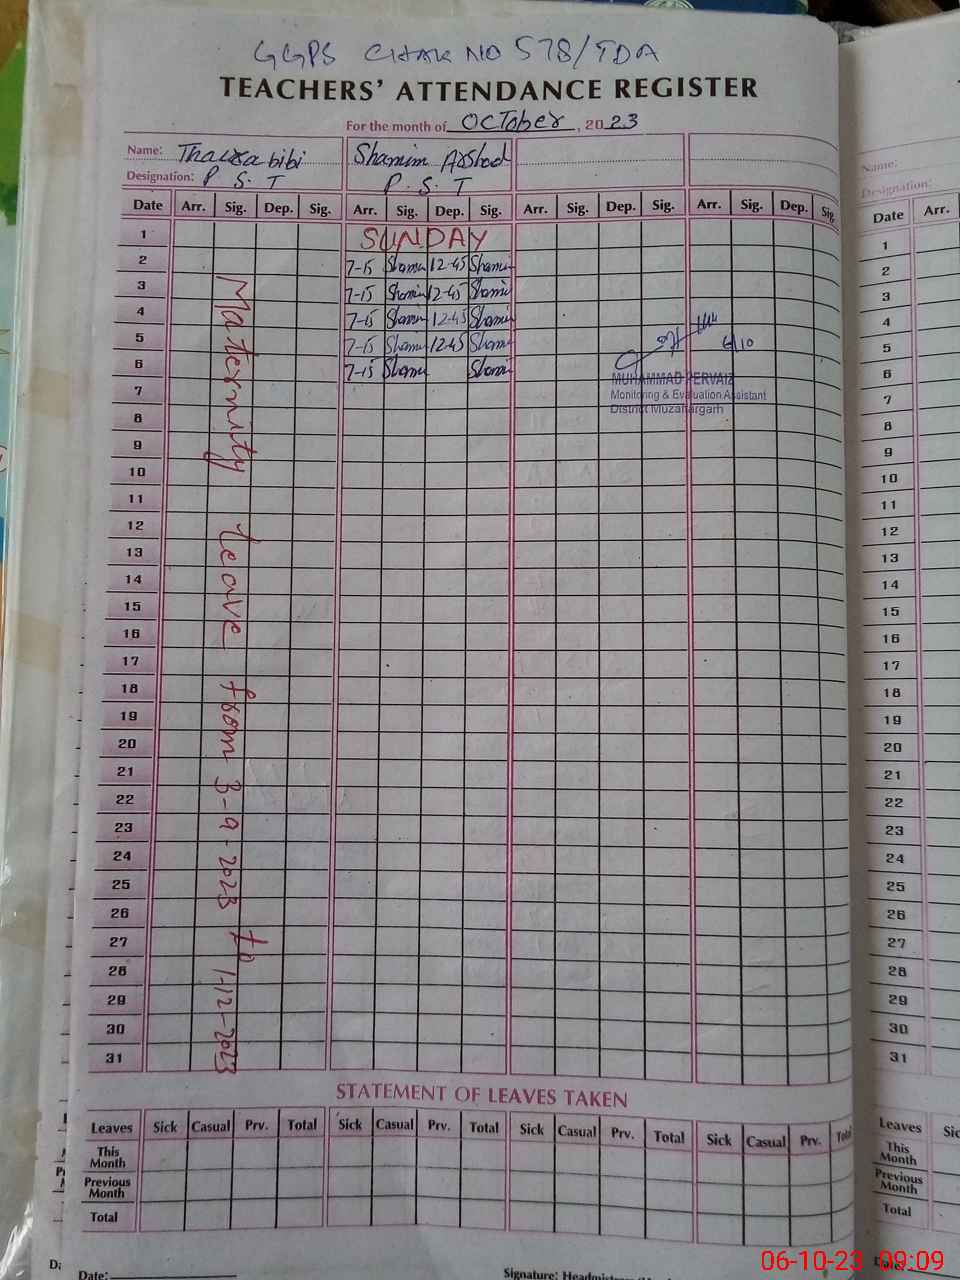 GGPS CHAK NO 578/TDA
TEACHERS' ATTENDANCE REGISTER
For the month of October, 2023
Name: Thaira bibi Shamim Arshad
Designation: P S. T P. S. T
Date Arr. Sig. Dep. Sig. Arr. Sig. Dep. Sig. Arr. Sig. Dep. Sig. Arr. Sig. Dep. Sig.
1 SUNDAY
2 7-15 Shamim 12-45 Shamim
3 7-15 Shamim 12-45 Shamim
4 7-15 Shamim 12-45 Shamim
5 7-15 Shamim 12-45 Shamim
6 7-15 Shamim Shamim
7
8
9
10
11
12
13
14
15
16
17
18
19
20
21
22
23
24
25
26
27
28
29
30
31
Maternity leave from 3-9-2023 to 1-12-2023
6/10
MUHAMMAD PERVAIZ
Monitoring & Evaluation Assistant
District Muzafargarh
STATEMENT OF LEAVES TAKEN
Leaves Sick Casual Prv. Total Sick Casual Prv. Total Sick Casual Prv. Total Sick Casual Prv. Total
This Month
Previous Month
Total
Date:
Signature:
Name:
Designation:
Date Arr.
1
2
3
4
5
6
7
8
9
10
11
12
13
14
15
16
17
18
19
20
21
22
23
24
25
26
27
28
29
30
31
Leaves
This Month
Previous Month
Total
Date:
06-10-23 09:09